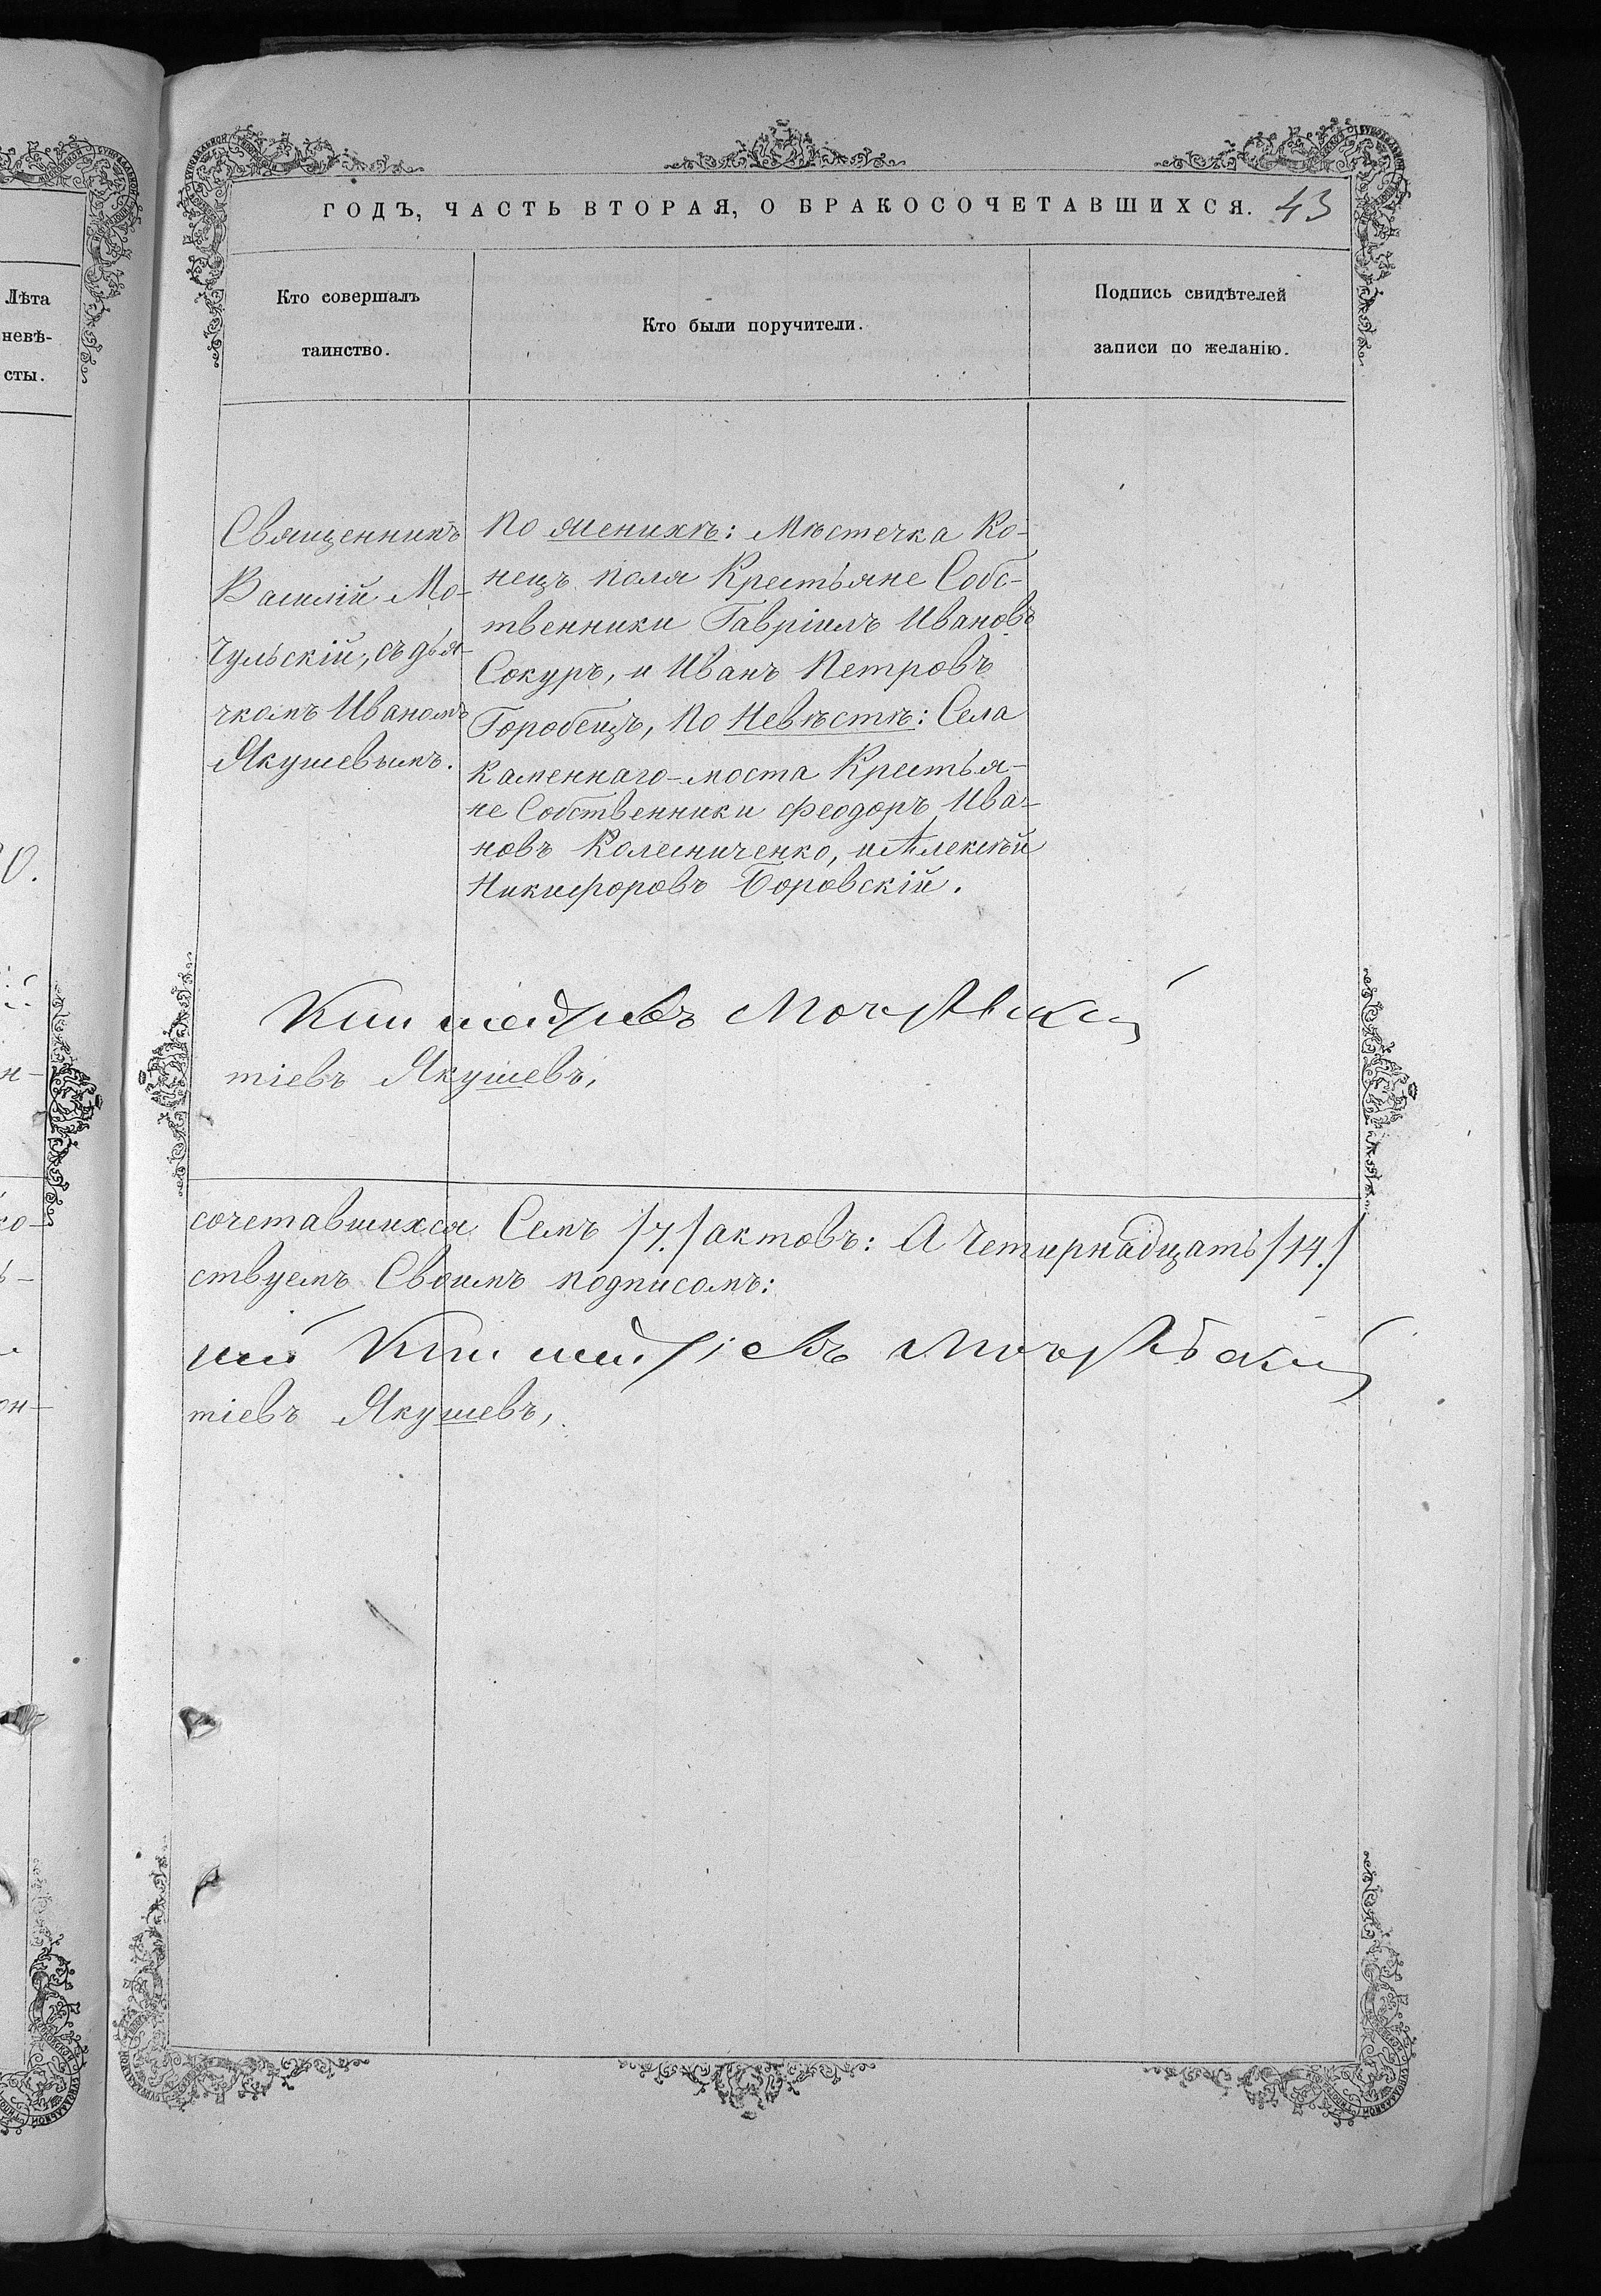 Лѣта
невѣ-
сты.
ГОДЪ, ЧАСТЬ ВТОРАЯ, О БРАКОСОЧЕТАВШИХСЯ. 43
Кто совершалъ
таинство.
Кто были поручители.
Подпись свидѣтелей
записи по желанію.
Священникъ
Василій Мо-
чульскій, съ дья-
чкомъ Иваномъ
Якушевымъ.
По женихѣ: Мѣстечка Ко-
нецъ поля Крестьяне Собс-
твенники Гавріилъ Ивановъ
Сокуръ, и Иванъ Петровъ
Горобецъ, По Невѣстѣ: Села
Каменнаго-моста Крестья-
не Собственники Феодоръ Ива-
новъ Колесниченко, и Алексѣй
Никифоровъ Боровскій.
Мочульскій
тіевъ Якушевъ,
сочетавшихся Семъ /7./ актовъ: А Четирнадцать /14./
ствуемъ Своимъ подписомъ:
Мочульскій
тіевъ Якушевъ,